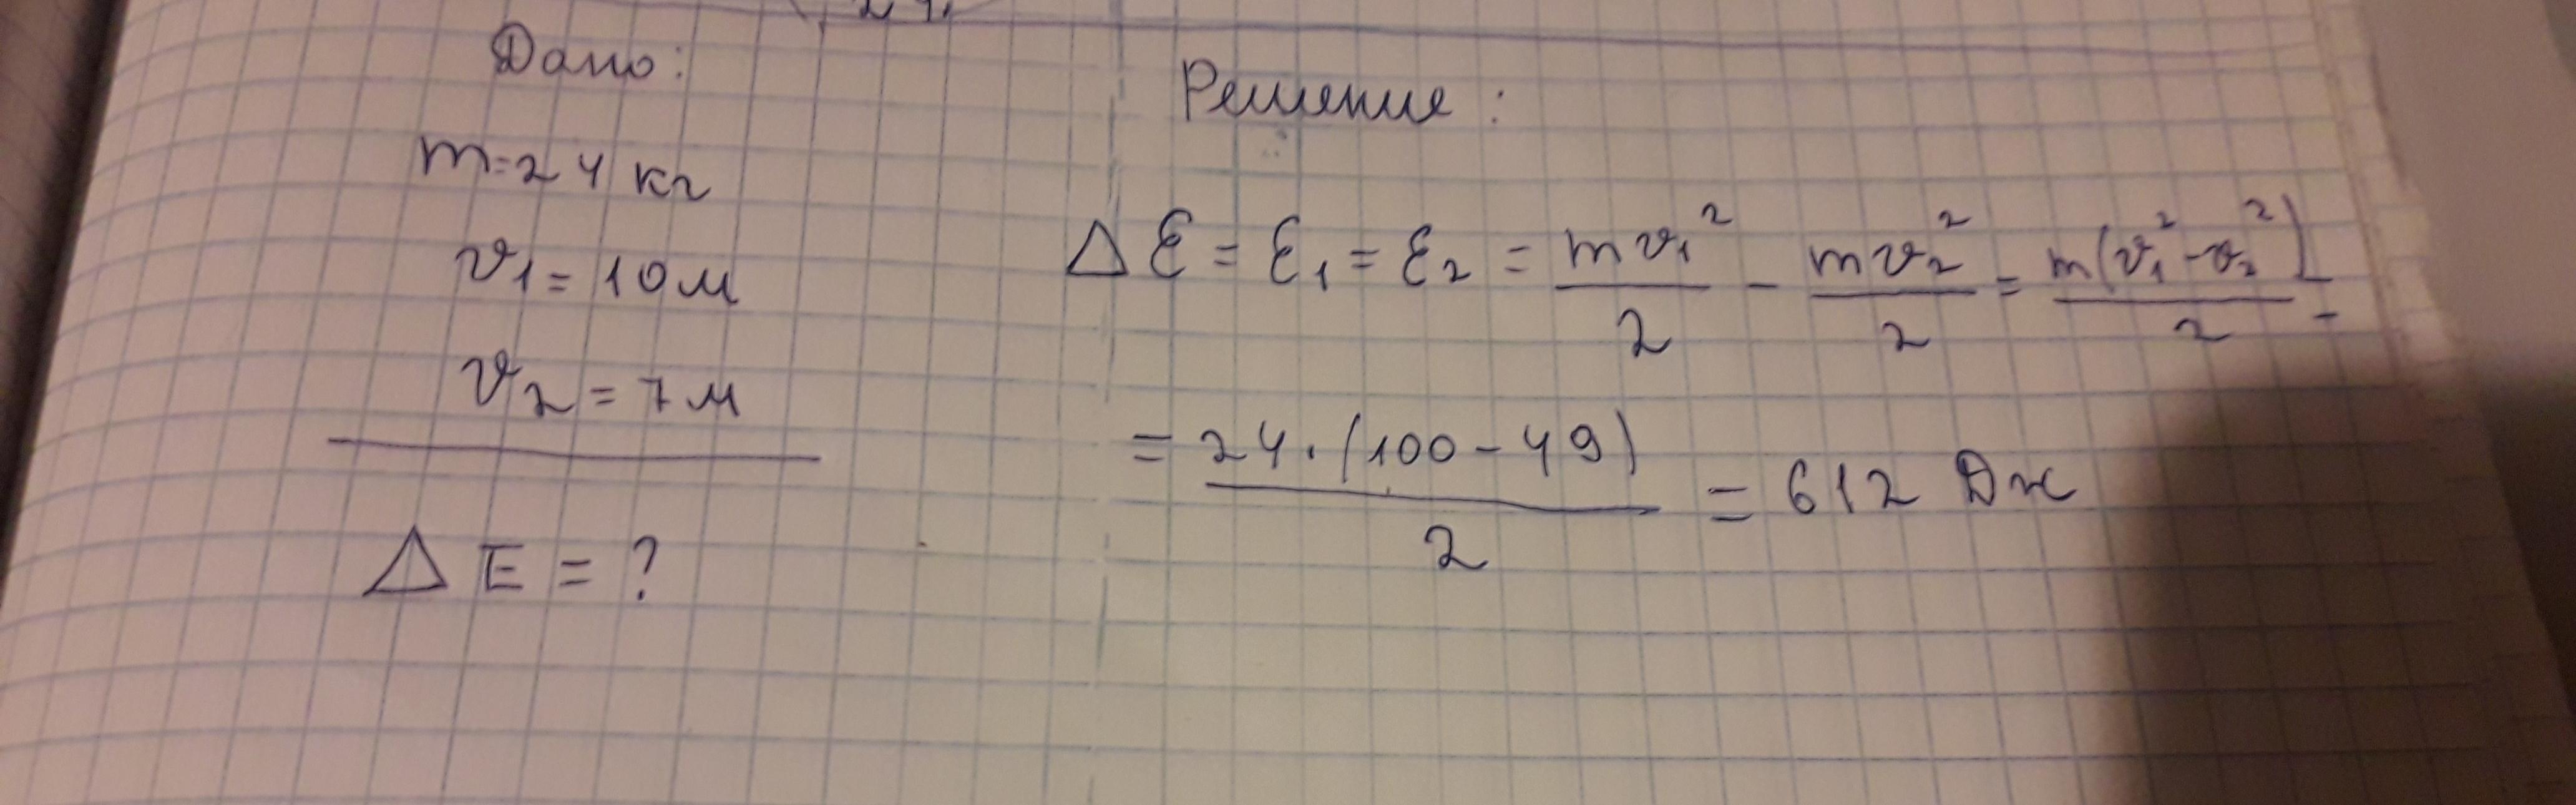 Дано:
m=24 кг
v1 = 10м
v2 = 7м
ΔE = ?
Решение:
ΔE = E1 = E2 = mv1²/2 - mv2²/2 = m(v1²-v2²)/2 =
= 24·(100-49)/2 = 612 Дж